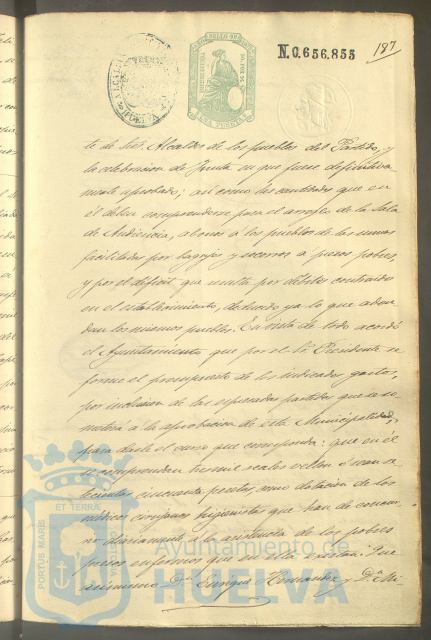 SELLO
UNA PESETA
N.0.656.855
187
te de los Alcaldes de los pueblos del Partido, y
la celebracion de Junta en que fuese definitiva-
mente aprobado; asi como las cantidades que en
él deben comprenderse para el arreglo de la Sala
de Audiencia, abonos a los pueblos de las sumas
facilitadas por bagajes y socorros a presos pobres,
y por el déficit que resulta por débitos contraidos
en el establecimiento, deduciendo ya lo que adeu-
dan los mismos pueblos. En vista de todo acordó
el Ayuntamiento que por el Sr. Presidente se
forme el presupuesto de los indicados gastos,
por inclusion de las expresadas partidas que se so-
meterá a la aprobacion de esta Municipalidad,
para darle el curso que corresponda: que en él
se comprendan tres mil reales vellon ó sean se-
tecientas cincuenta pesetas, como dotacion de los
médicos cirujanos higienistas que han de concur-
rir diariamente a la asistencia de los pobres
presos enfermos que en ella existan: Que
asimismo Dn. Enrique Hernandez y Dn. Mi-
PORTUS MARIS ET TERRAE CUSTODIA
Ayuntamiento de
HUELVA